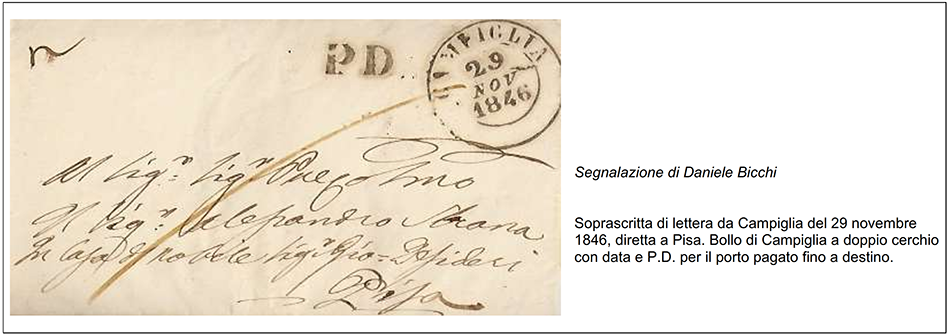 P.D.
CAMPIGLIA
29
NOV
1846
Al Sig.r Sig.r Pregmo
Il Sig.r Alessandro
In Casa del nobile Sig.r Gio: Desideri
Pisa
Segnalazione di Daniele Bicchi
Soprascritta di lettera da Campiglia del 29 novembre
1846, diretta a Pisa. Bollo di Campiglia a doppio cerchio
con data e P.D. per il porto pagato fino a destino.